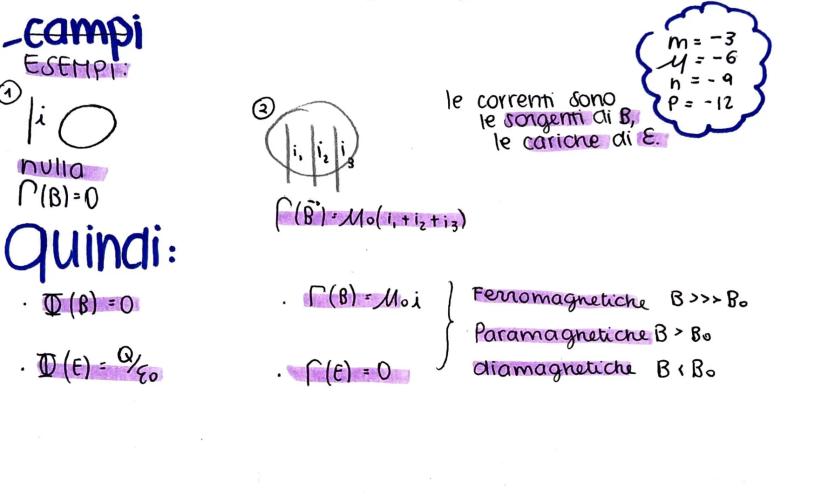 -campi
ESEMPI:
①
i
nulla
Γ(B)=0
②
i₁ i₂ i₃
Γ(B⃗)=μ₀(i₁+i₂+i₃)
le correnti sono
le sorgenti di B,
le cariche di E.
m = -3
μ = -6
n = -9
P = -12
Quindi:
· Φ(B)=0
· Φ(E)= Q/ε₀
· Γ(B)=μ₀i
· Γ(E)=0
Ferromagnetiche B>>>B₀
Paramagnetiche B > B₀
diamagnetiche B < B₀